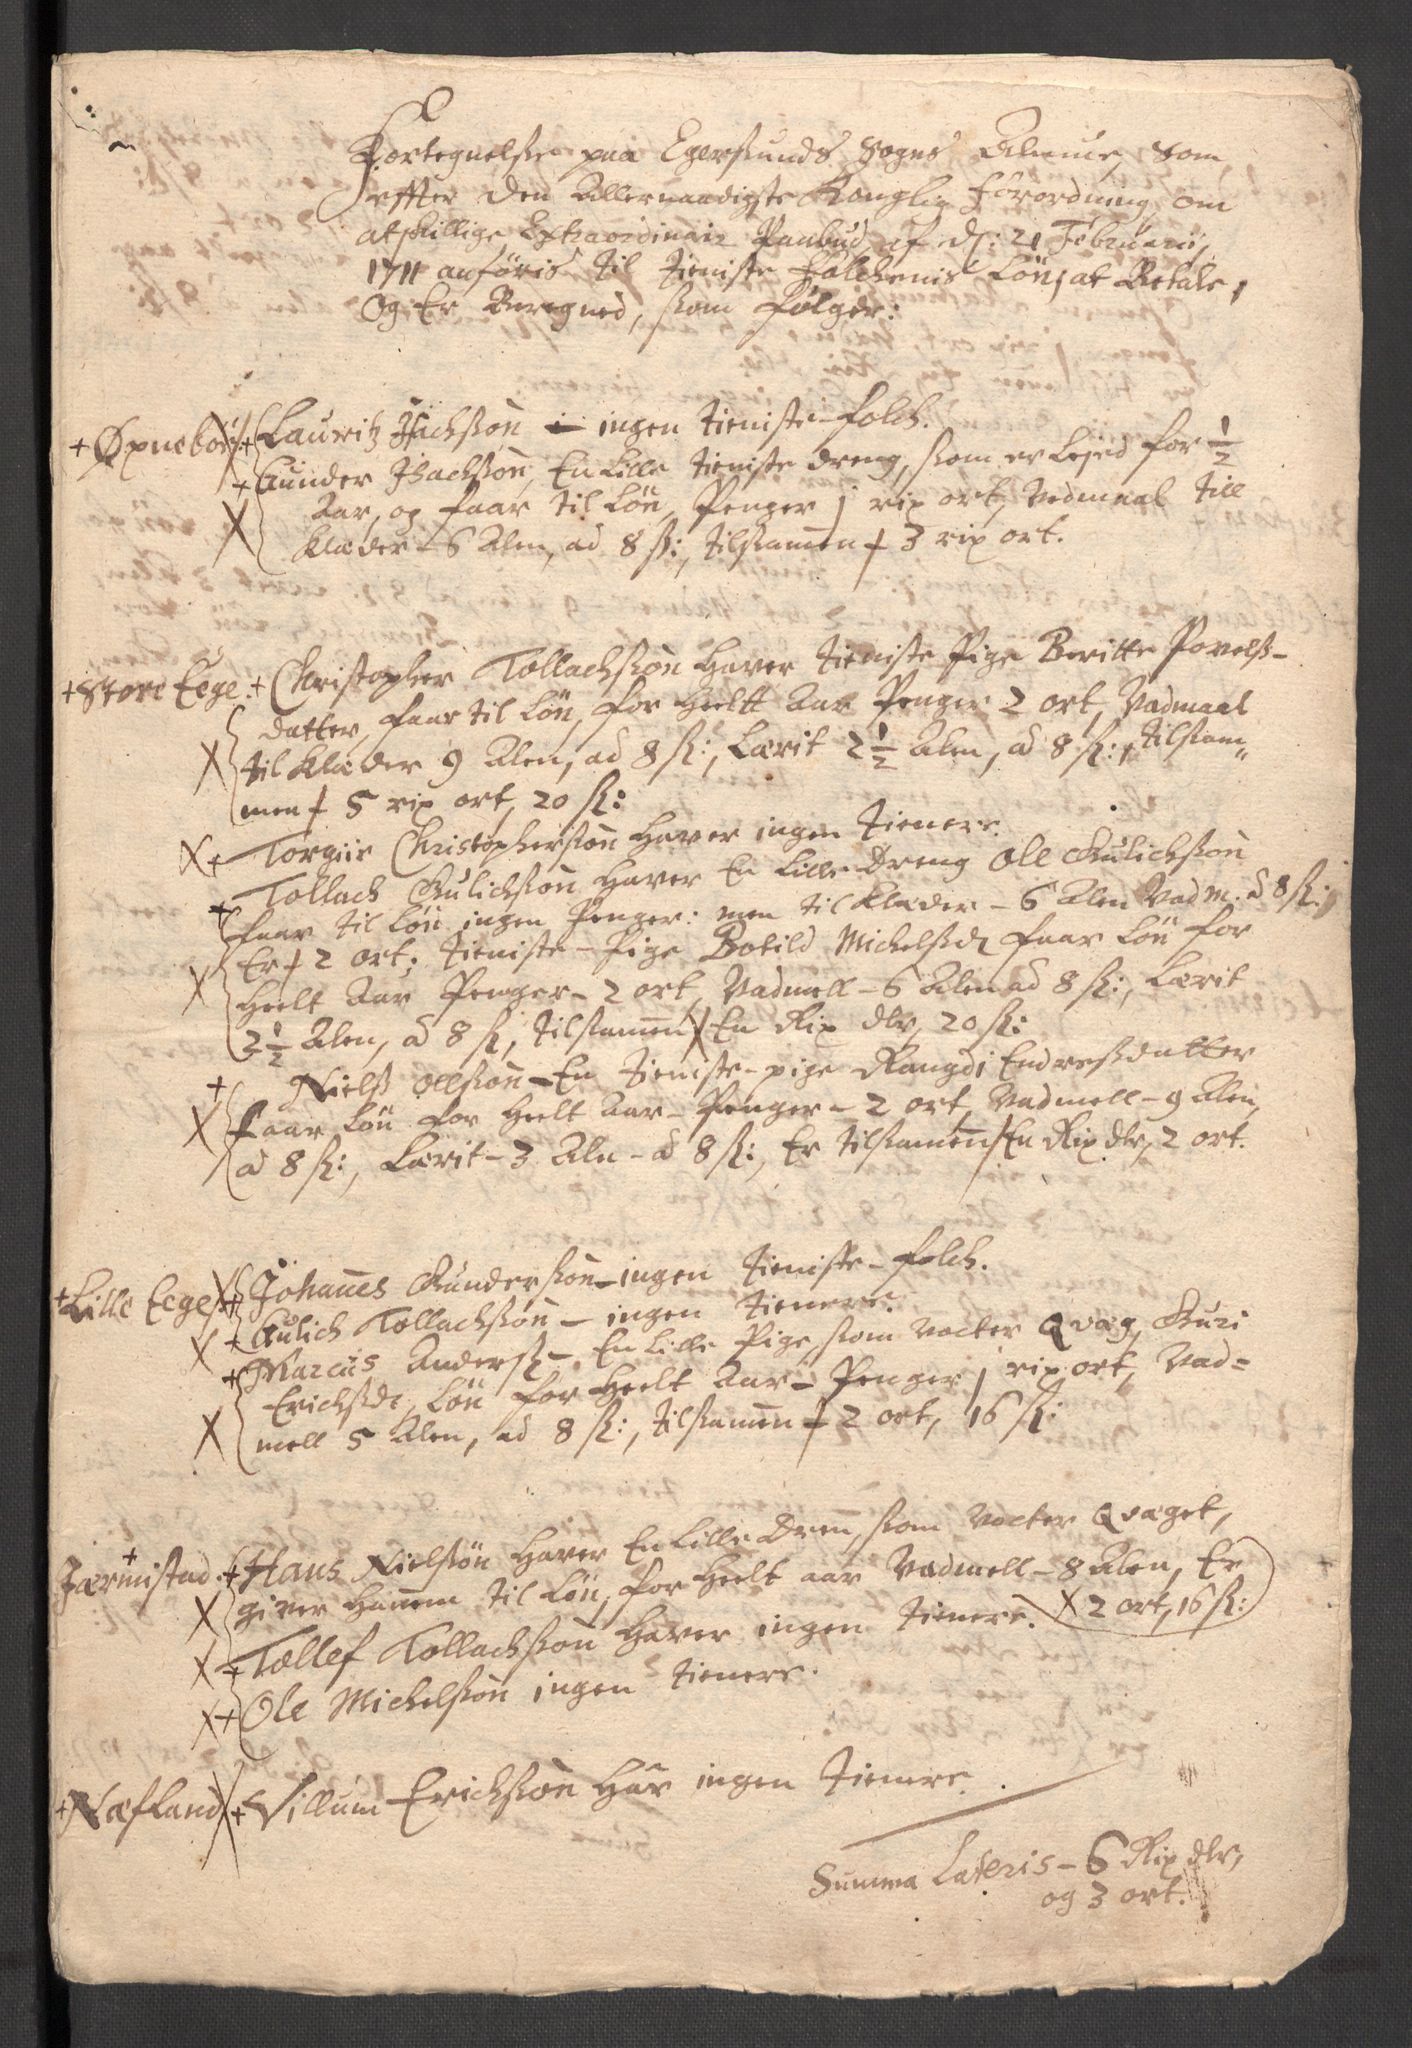 Fortegnelse paa Egersunds Sogns Almue, som
effter den Allernaadigste Konglig Forordning om
atskillige Extraordinair Paabud af d: 21 Februarij
1711 anføris til tieniste folchenis Løn, at Betale,
Og Er Beregned, som følger:
+ Øxneboe + Lauritz Isachsøn - ingen tieniste-folch.
+ Gunder Isachsøn, En Lille tieniste dreng, som er Lejed for 1/2
X Aar, og faar til Løn, Penger j rix ort, Vadmaal till
Klæder - 6 Alen, ad 8 ß:, tilsamen + 3 rix ort.
+ Store Eege + Christopher Tollachsøn Haver tieniste Pige Beritte Povelß-
datter, faar til Løn, for Heelt Aar Penger 2 ort, Vadmaal
X til Klæder 9 Alen, ad 8 ß:, Lærit 2 1/2 Alen, ad 8 ß:, tilsam-
men + 5 rix ort, 20 ß:
X + Torgiir Christophersøn Haver ingen tienere.
+ Tollach Gulichsøn Haver En Lille Dreng Oll Gulichsøn
faar til Løn ingen Penger: men til Klæder - 6 Alen Vadm. á 8 ß:,
Er + 2 ort; tieniste-Pige Botild Michelsd faar Løn for
X Heelt Aar Penger - 2 ort, Vadmell - 6 Alen ad 8 ß:, Lærit
2 1/2 Alen, á 8 ß, tilsamen / En Rix dlr, 20 ß:
+ Nielß Ollsøn - En tieniste-pige Rangdi Endreßdatter
X faar Løn for Heelt Aar - Penger - 2 ort, Vadmell - 9 Alen,
ad 8 ß:, Lærit - 3 Aln - á 8 ß:, Er tilsamen / En Rix dlr, 2 ort.
+ Lille Eege X + Johanes Gundersøn - ingen tieniste-folch.
X + Gulich Tollachsøn - ingen tienere.
+ Marcus Anderß - En Lille Pige, som vocter Qvæg, Guri
Erichsdt, Løn for Heelt Aar - Penger j rix ort, Vad=
X mell 5 Alen, ad 8 ß:, tilsamen + 2 ort, 16 ß:
+ Jærmistad. + Hans Nielsøn Haver En Lille Dren, som vocter Qvæget,
X giver Hanem til Løn, for Heelt aar Vadmell - 8 Alen, Er
X 2 ort, 16 ß:
X + Tollef Tollachsøn Haver ingen tienere.
X + Ole Michelsøn ingen tienere.
+ Næfland X + Villum Erichsøn Har ingen tienere.
Summa Lateris - 6 Rix dlr,
og 3 ort.